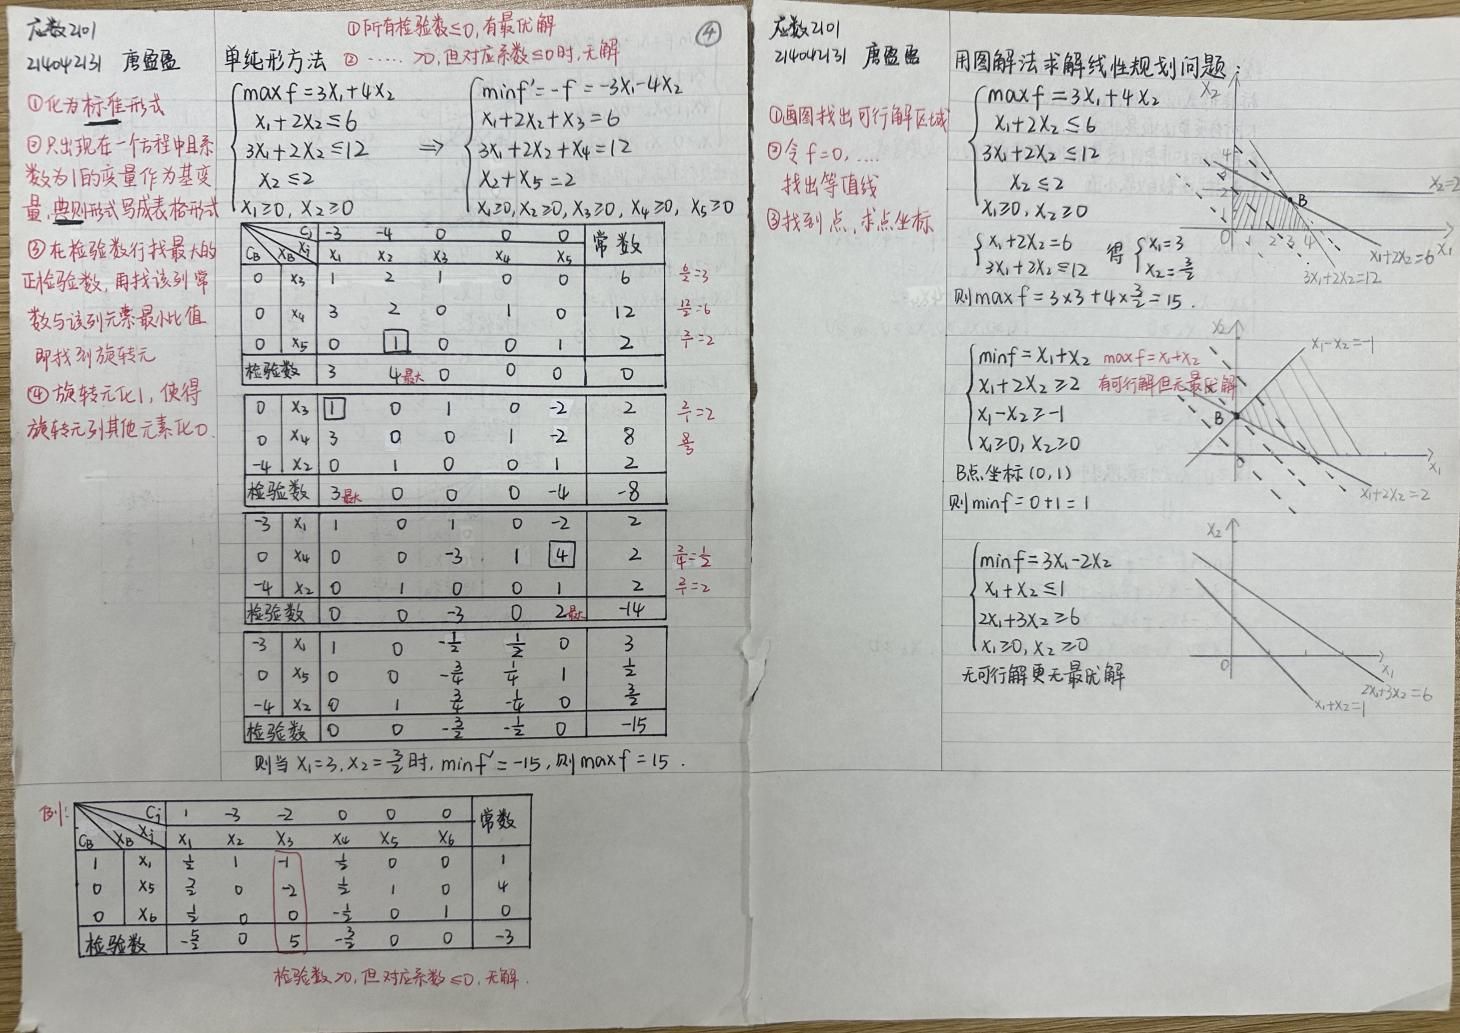 应数2101
214042131 唐盈盈
①化为标准形式
②只出现在一个方程中且系
数为1的变量作为基变
量,典则形式写成表格形式
③在检验数行找最大的
正检验数,再找该列常
数与该列元素最小比值
即找到旋转元
④旋转元化1,使得
旋转元列其他元素化0.
①所有检验数≤0,有最优解
④
单纯形方法 ②…… >0,但对应系数≤0时,无解
max f = 3x₁+4x₂
x₁+2x₂≤6
3x₁+2x₂≤12
x₂≤2
x₁≥0, x₂≥0
⇒
min f′=-f=-3x₁-4x₂
x₁+2x₂+x₃=6
3x₁+2x₂+x₄=12
x₂+x₅=2
x₁≥0, x₂≥0, x₃≥0, x₄≥0, x₅≥0
Cj -3 -4 0 0 0 常数
CB XB Xj x₁ x₂ x₃ x₄ x₅
0 x₃ 1 2 1 0 0 6 6/2=3
0 x₄ 3 2 0 1 0 12 12/2=6
0 x₅ 0 1 0 0 1 2 2/1=2
检验数 3 4最大 0 0 0 0
0 x₃ 1 0 1 0 -2 2 2/1=2
0 x₄ 3 0 0 1 -2 8 8/3
-4 x₂ 0 1 0 0 1 2
检验数 3最大 0 0 0 -4 -8
-3 x₁ 1 0 1 0 -2 2
0 x₄ 0 0 -3 1 4 2 2/4=1/2
-4 x₂ 0 1 0 0 1 2 2/1=2
检验数 0 0 -3 0 2最大 -14
-3 x₁ 1 0 -1/2 1/2 0 3
0 x₅ 0 0 -3/4 1/4 1 1/2
-4 x₂ 0 1 3/4 -1/4 0 3/2
检验数 0 0 -3/2 -1/2 0 -15
则当 x₁=3, x₂=3/2 时, min f′=-15, 则 max f=15.
例:
Cj 1 -3 -2 0 0 0 常数
CB XB Xj x₁ x₂ x₃ x₄ x₅ x₆
1 x₁ 1/2 1 -1 1/2 0 0 1
0 x₅ 3/2 0 -2 1/2 1 0 4
0 x₆ 1/2 0 0 -1/2 0 1 0
检验数 -5/2 0 5 -3/2 0 0 -3
检验数>0,但对应系数≤0,无解.
应数2101
214042131 唐盈盈
①画图找出可行解区域
②令f=0,....
找出等值线
③找到点,求点坐标
用图解法求解线性规划问题:
max f = 3x₁+4x₂
x₁+2x₂≤6
3x₁+2x₂≤12
x₂≤2
x₁≥0, x₂≥0
x₁+2x₂=6
3x₁+2x₂=12
得
x₁=3
x₂=3/2
则max f=3×3+4×3/2=15.
x₂
x₂=2
B
x₁
x₁+2x₂=6
3x₁+2x₂=12
min f=x₁+x₂ max f=x₁+x₂
x₁+2x₂≥2 有可行解但无最优解
x₁-x₂≥-1
x₁≥0, x₂≥0
B点坐标(0,1)
则min f=0+1=1
x₂
x₁-x₂=-1
B
0
x₁
x₁+2x₂=2
min f=3x₁-2x₂
x₁+x₂≤1
2x₁+3x₂≥6
x₁≥0, x₂≥0
无可行解更无最优解
x₂
0
x₁
2x₁+3x₂=6
x₁+x₂=1